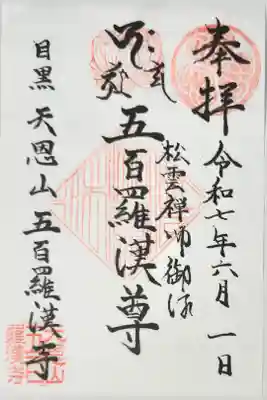 奉拝
令和七年六月一日
松雲禅師御作
五百羅漢尊
目黒 天恩山 五百羅漢寺